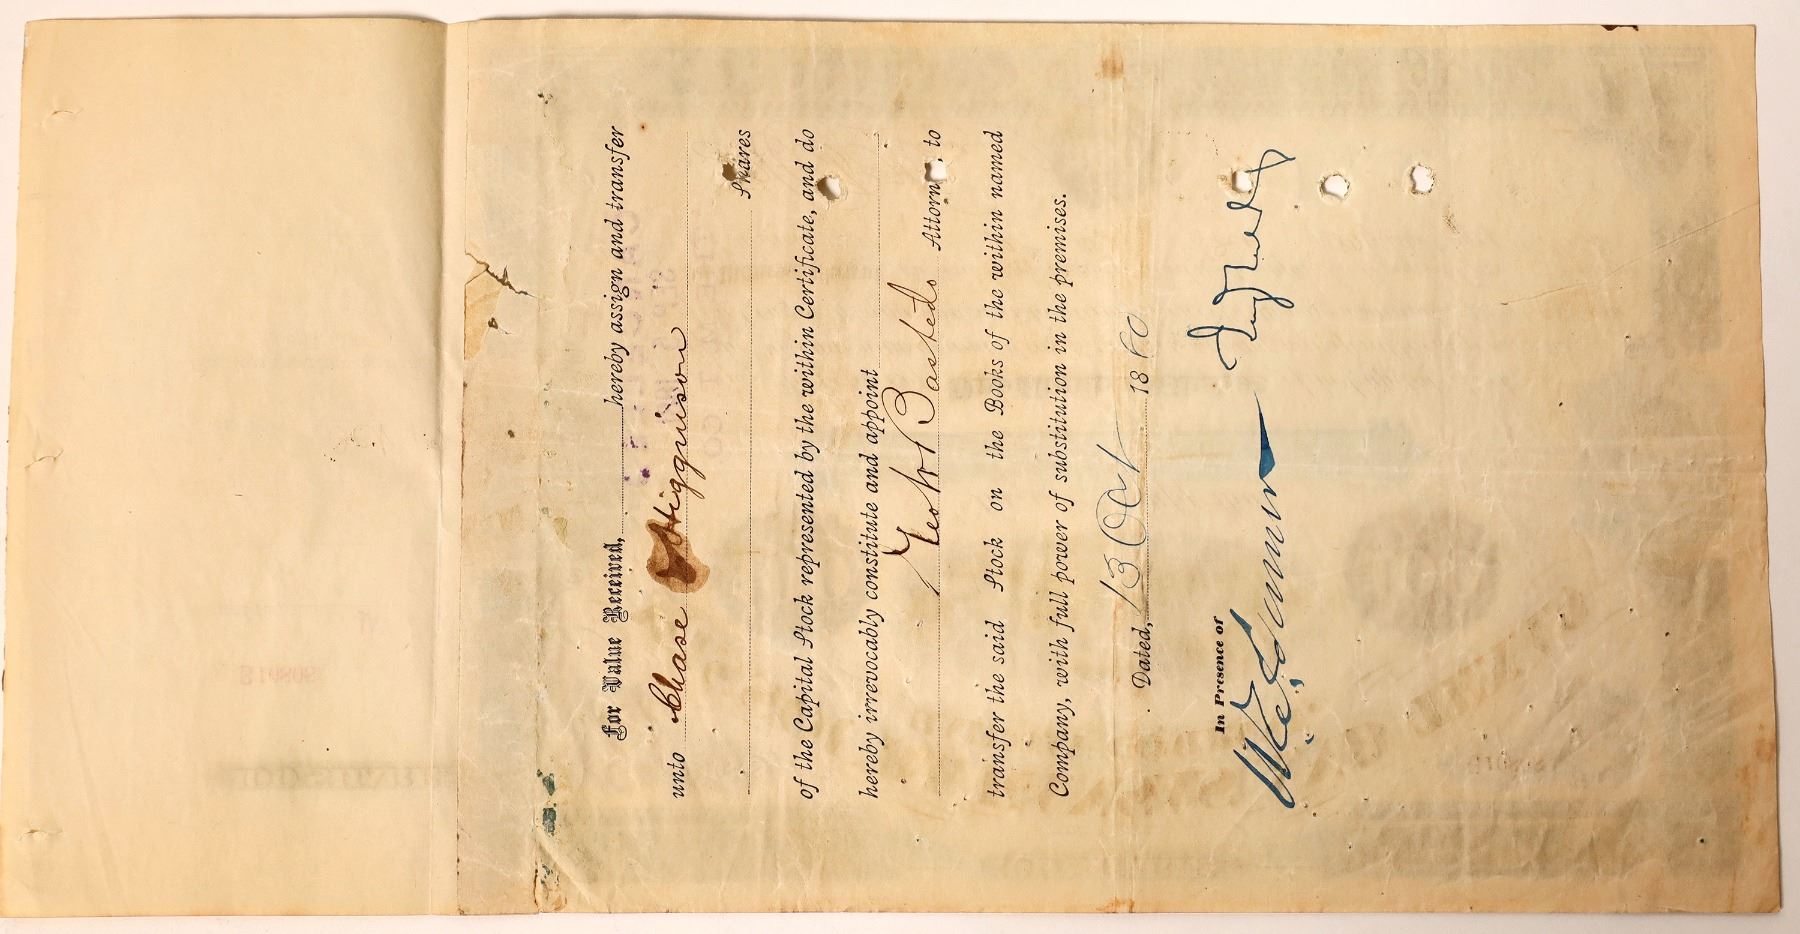 For Value Received, hereby assign and transfer
unto Chase & Higginson
Shares
of the Capital Stock represented by the within Certificate, and do
hereby irrevocably constitute and appoint
Geo W Bastedo Attorn to
transfer the said Stock on the Books of the within named
Company, with full power of substitution in the premises.
Dated, 13 Oct 1880
In Presence of